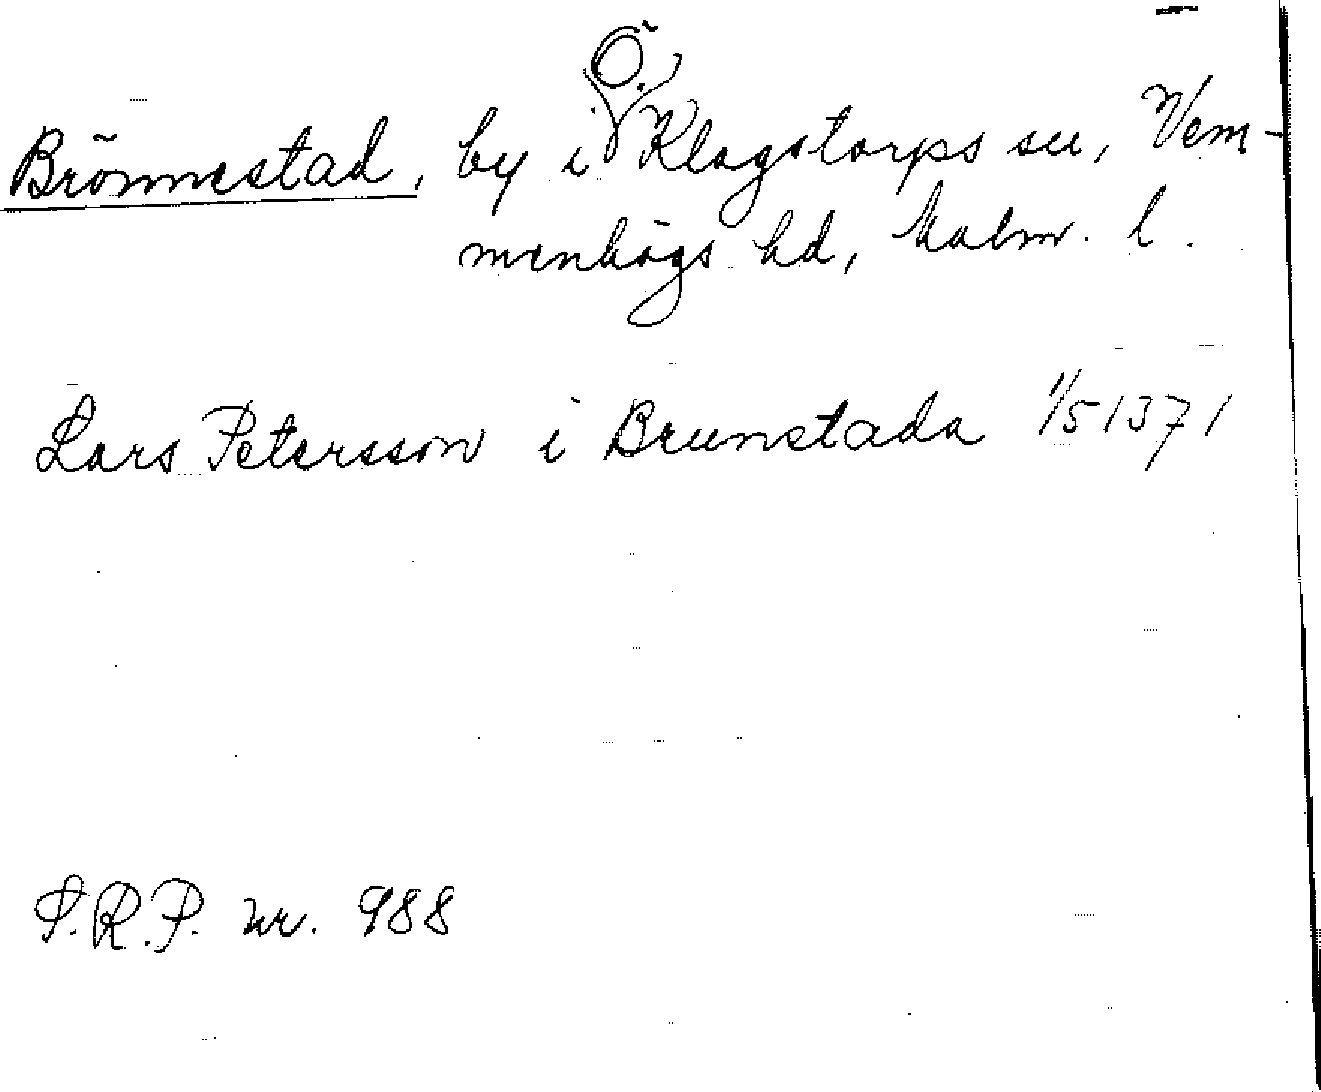 Brönnestad, by i (Ö.) Klagstorps sn, Vem-
menhögs hd, Malm. l.
Lars Petersson i Brunstada 1/5 1371
S.R.P. nr. 988